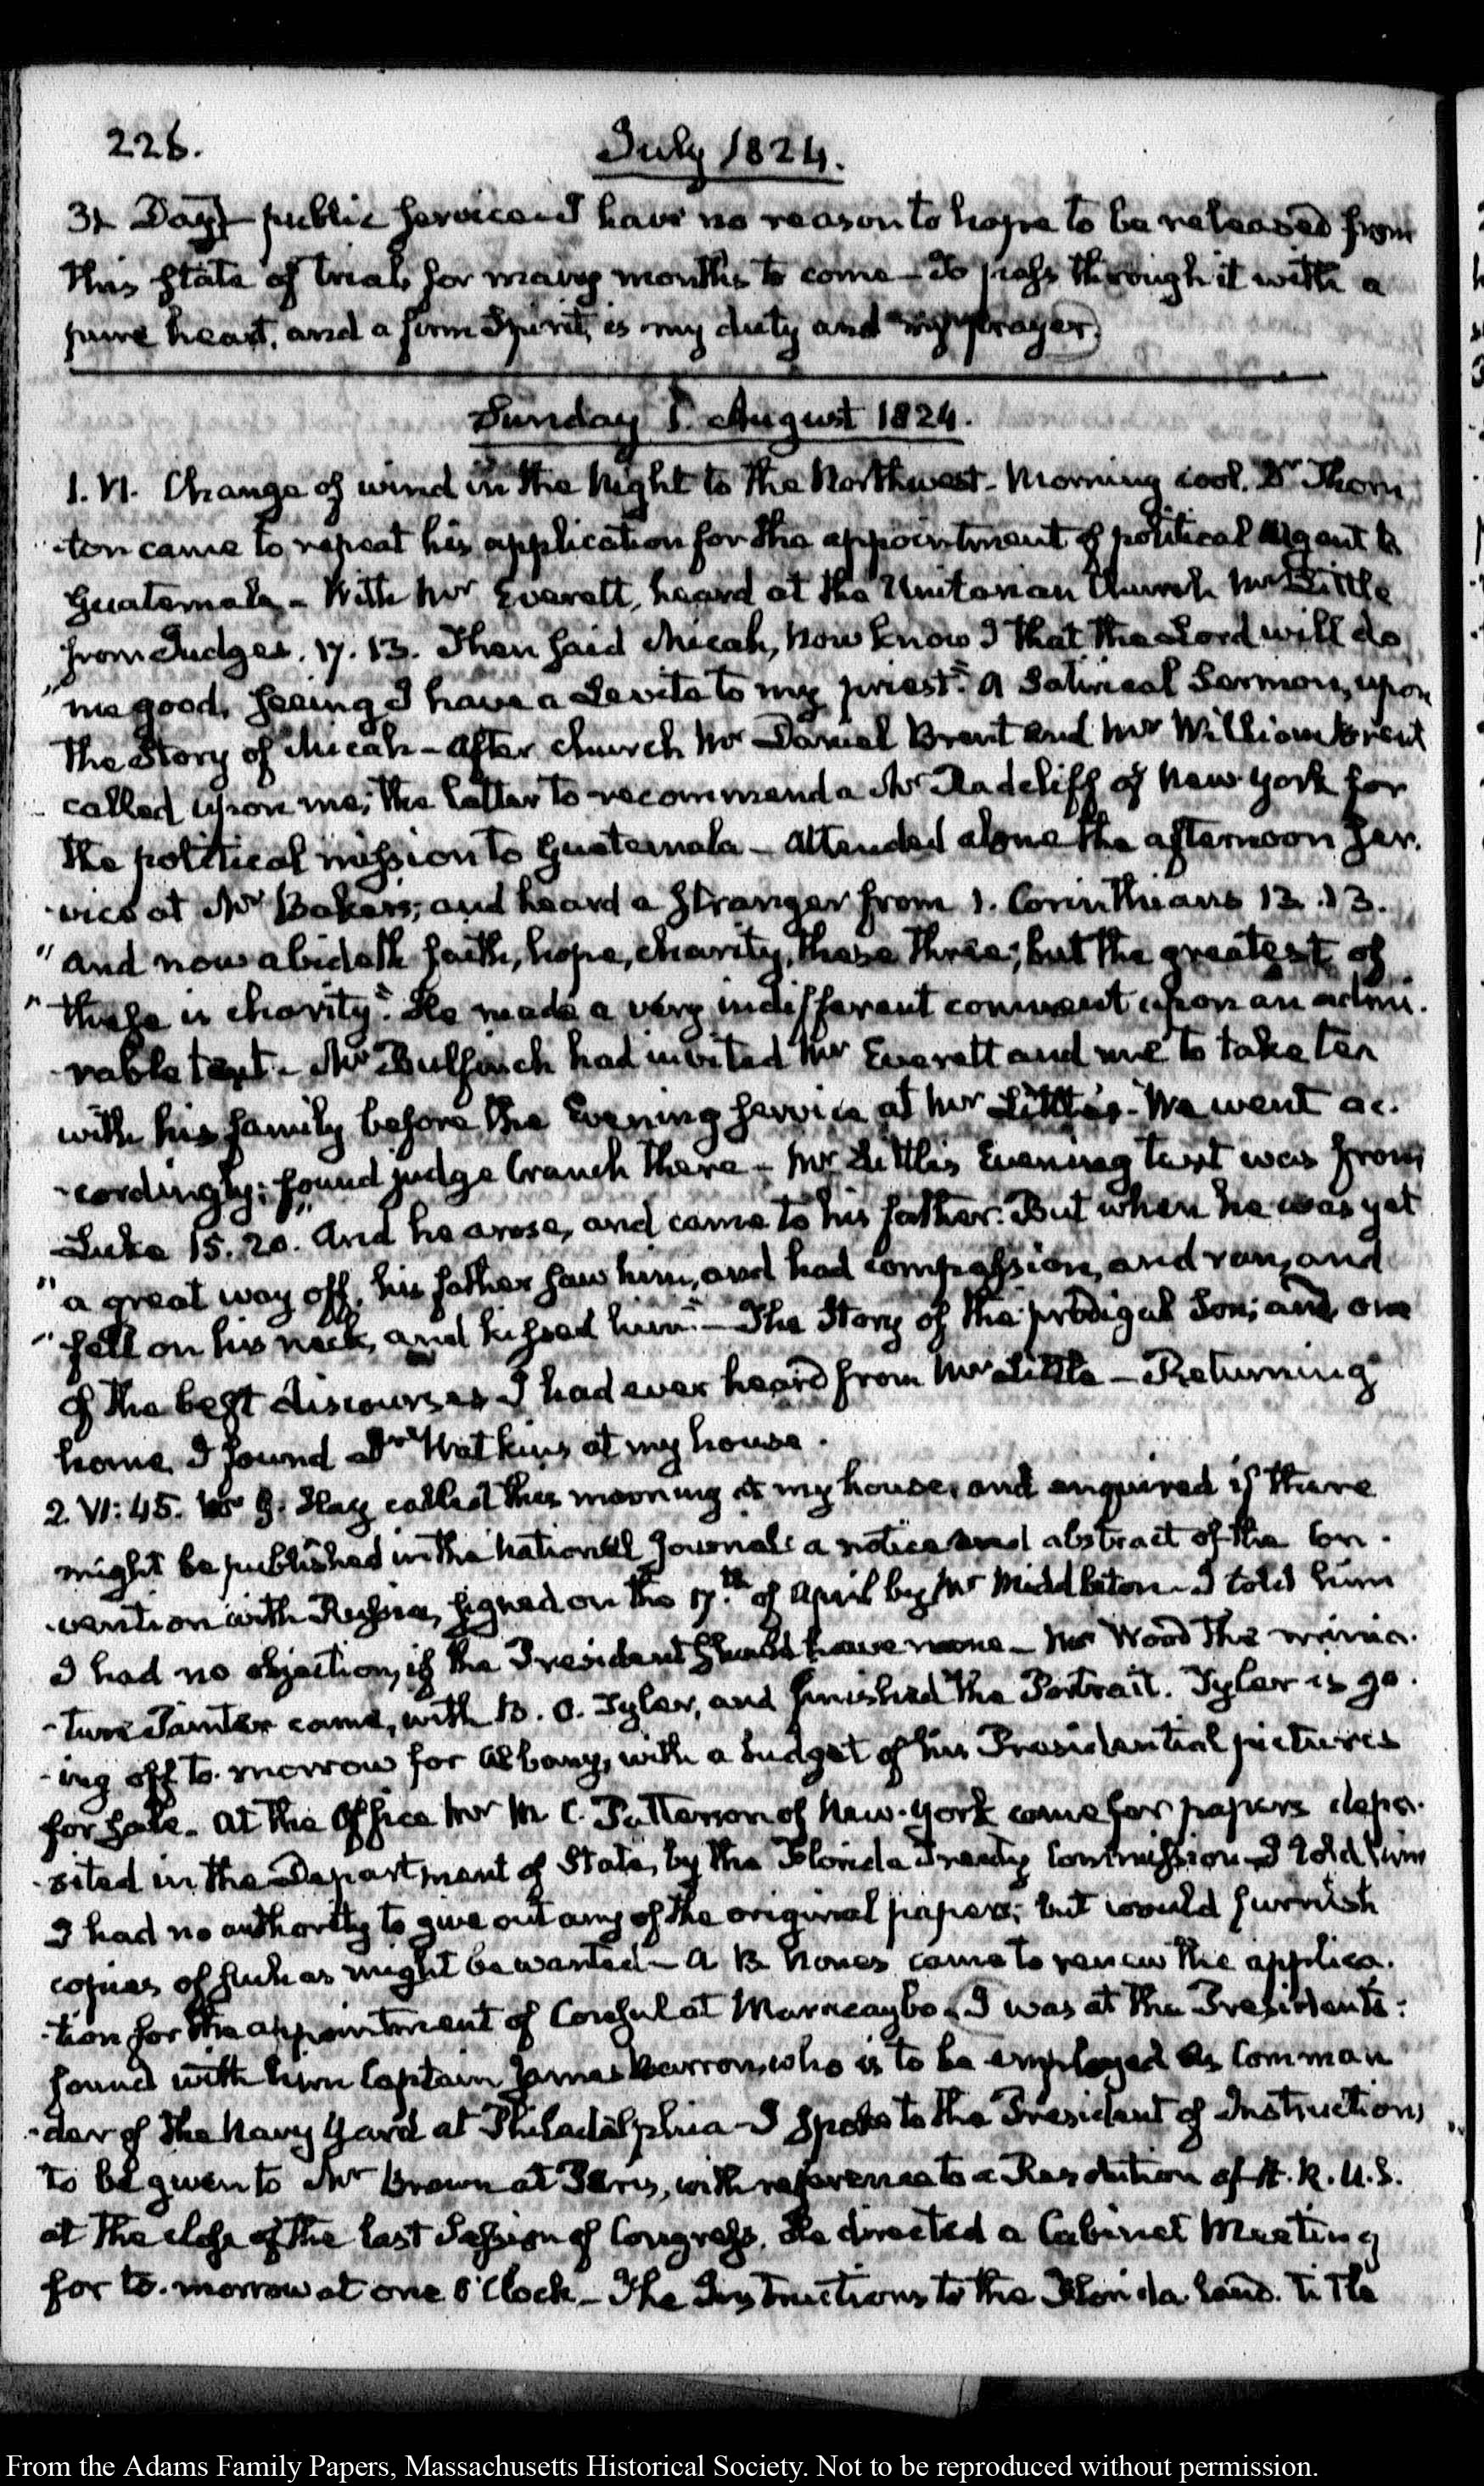 226.
July 1824.
31. Day} public service. I have no reason to hope to be released from
this state of trial, for many months to come — To pass through it with a
pure heart, and a firm Spirit, is my duty and my prayer.
Sunday 1. August 1824.
1. VI. Change of wind in the Night to the Northwest. Morning cool. Dr Thorn
-ton came to repeat his application for the appointment of political Agent to
Guatemala — With Mr Everett, heard at the Unitarian Church Mr Little
from Judges. 17. 13. Then said Micah, Now know I that the Lord will do
"me good, seeing I have a Levite to my priest." A Satirical Sermon, upon
the Story of Micah — After church Mr Daniel Brent and Mr William Brent
called upon me; the latter to recommend a Mr Radcliff of New-York for
the political mission to Guatemala — Attended alone the afternoon ser.
-vice at Mr Baker's; and heard a stranger from 1. Corinthians 13. 13.
"And now abideth faith, hope, charity, these three; but the greatest of
"these is charity." He made a very indifferent comment upon an admi.
-rable text — Mr Bulfinch had invited Mr Everett and me to take tea
with his family before the Evening service at Mr Little's. We went ac.
-cordingly; found judge Cranch there — Mr Little's Evening text was from
Luke 15. 20. "And he arose, and came to his father. But when he was yet
"a great way off, his father saw him, and had compassion, and ran, and
"fell on his neck, and kissed him." — The Story of the prodigal Son; and one
of the best discourses I had ever heard from Mr Little — Returning
home, I found Dr Watkins at my house.
2. VI: 45. Mr G. Hay called this morning at my house, and enquired if there
might be published in the National Journal a notice and abstract of the Con.
-vention with Russia, signed on the 17.th of April by Mr Middleton — I told him
I had no objection, if the President should have none — Mr Wood the minia.
-ture Painter came, with B. O. Tyler, and finished the Portrait. Tyler is go.
-ing off to-morrow for Albany, with a budget of his Presidential pictures
for sale — At the Office Mr M. C. Patterson of New-York came for papers depo.
-sited in the Department of State, by the Florida Treaty Commission — I told him
I had no authority to give out any of the original papers; but would furnish
copies of such as might be wanted — A B. Nones came to renew the applica.
-tion for the appointment of Consul at Maracaybo. I was at the President's:
found with him Captain James Barron, who is to be employed as Comman
-der of the Navy Yard at Philadelphia — I spoke to the President of Instructions
to be given to Mr Brown at Paris, with reference to a Resolution of H. R. U. S.
at the close of the last Session of Congress. He directed a Cabinet Meeting
for to-morrow at one O'Clock — The Instructions to the Florida land. title
From the Adams Family Papers, Massachusetts Historical Society. Not to be reproduced without permission.